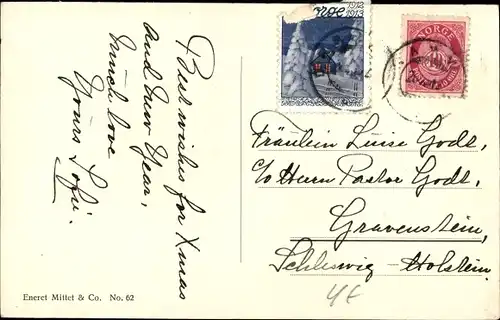 Best wishes for Xmas
and New Year,
Much love
Yours Sofie.
Eneret Mittet & Co. No. 62
1912
1913
NORGE
10
Fräulein Luise Godt,
c/o Herrn Pastor Godt,
Gravenstein,
Schleswig-Holstein.